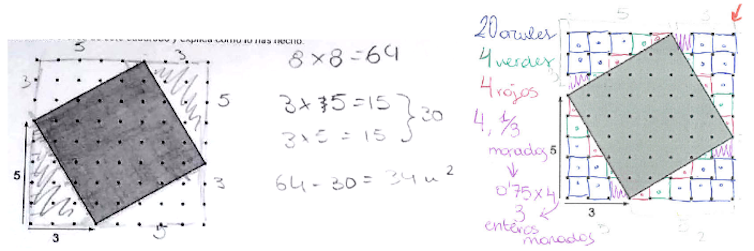 este cuadrado y explica cómo lo has hecho.
5
3
3
5
3
5
3
5
8 × 8 = 64
3 × 5 = 15
3 × 5 = 15
30
64 - 30 = 34 u²
20 azules
4 verdes
4 rojos
4, 1/3
morados
0'75 × 4
3
enteros
morados
5
3
3
5
3